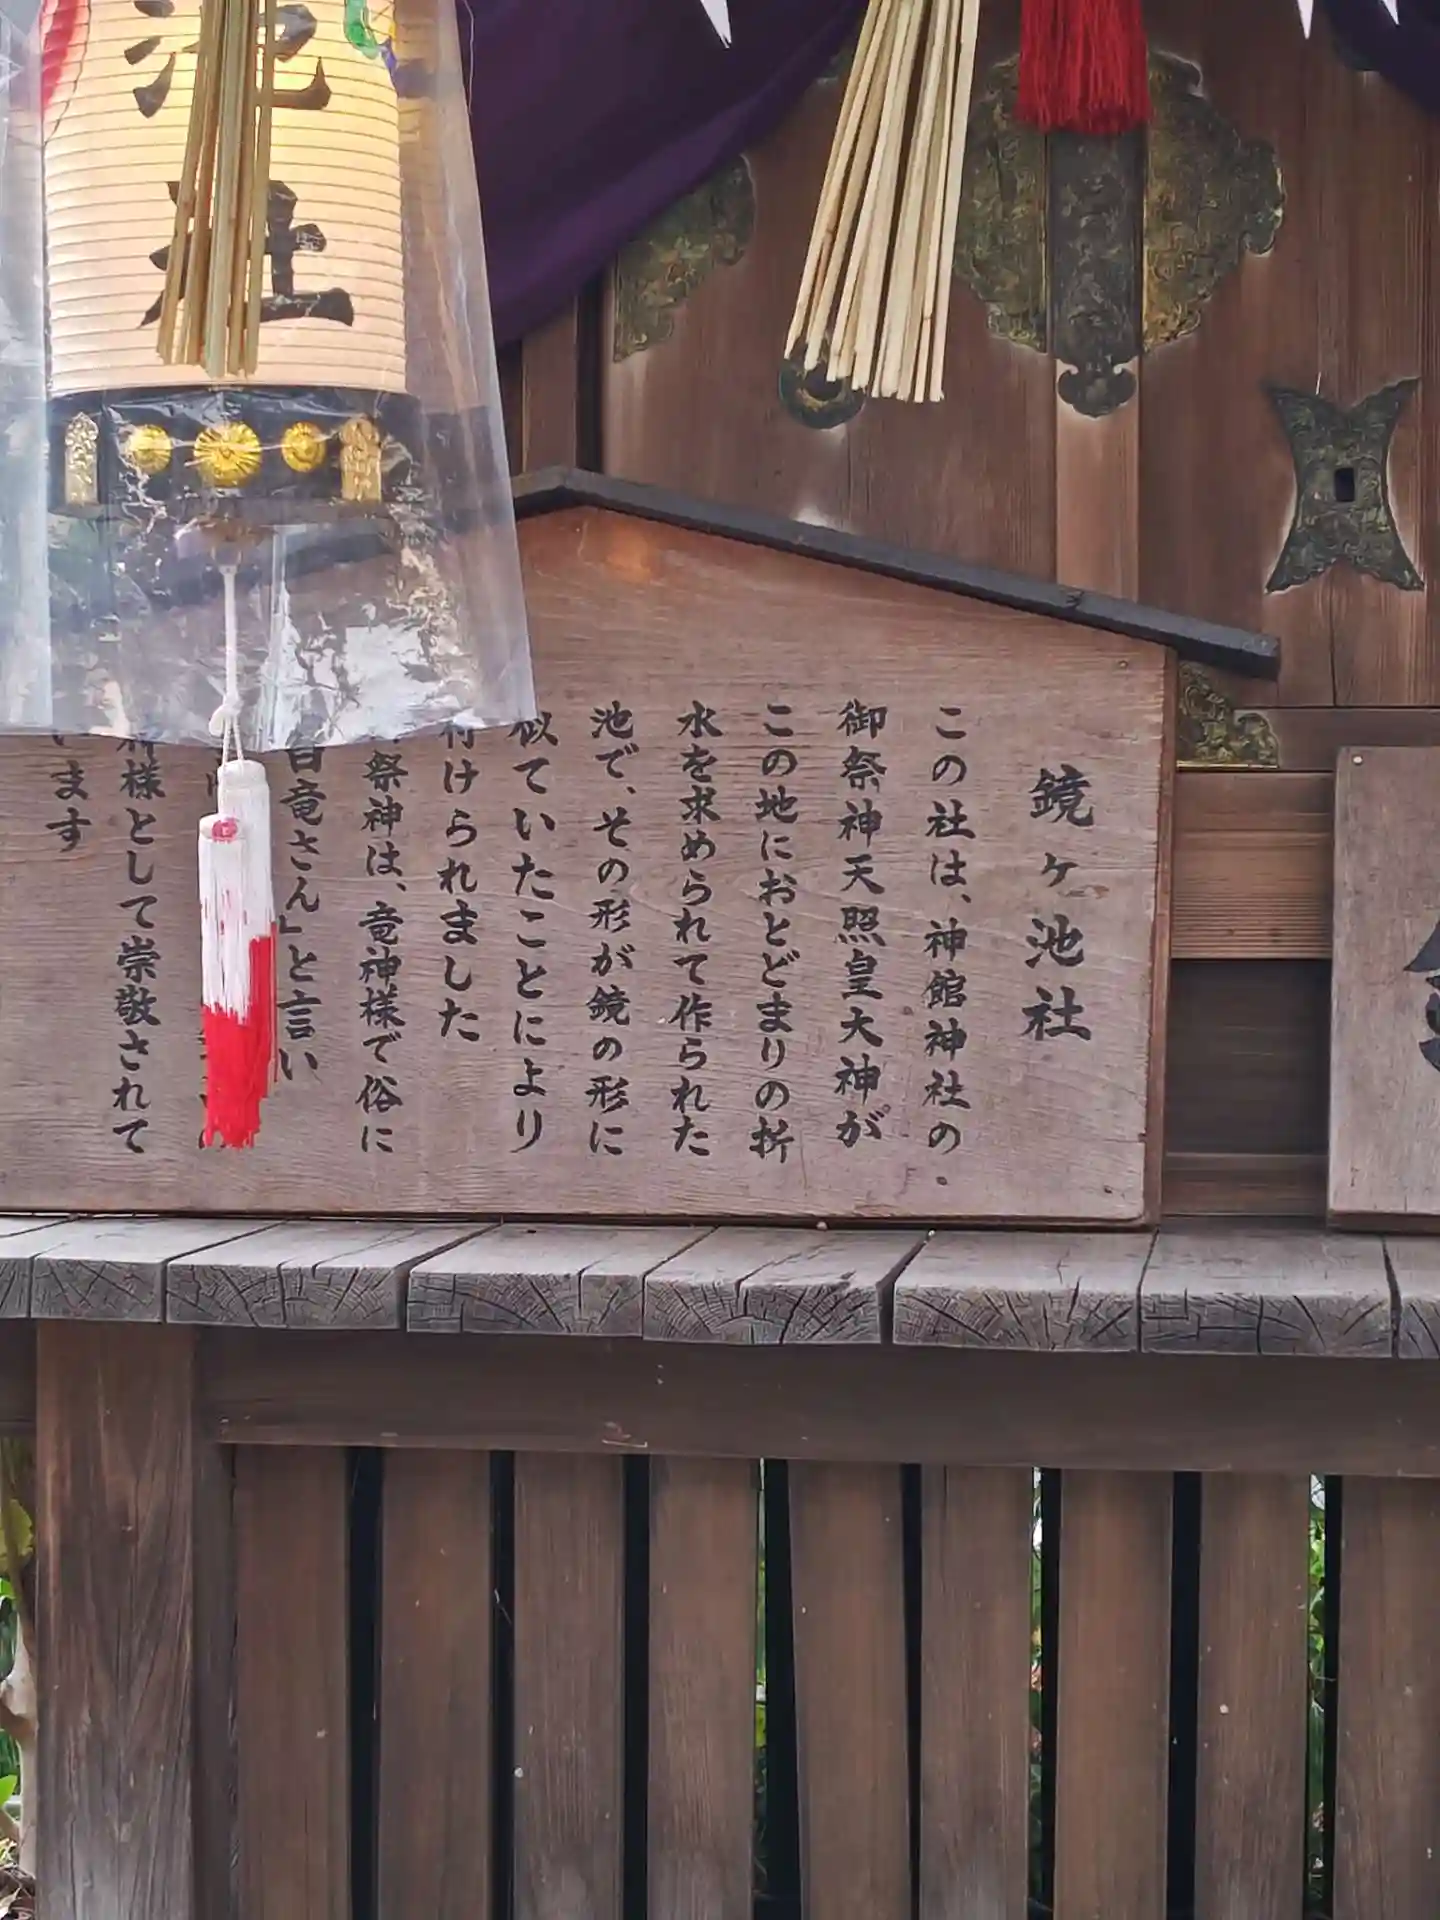 鏡ヶ池社
この社は、神館神社の
御祭神天照皇大神が
この地におとどまりの折
水を求められて作られた
池で、その形が鏡の形に
似ていたことにより
付けられました
祭神は、竜神様で俗に
白竜さん」と言い
神様として崇敬されて
います
池社